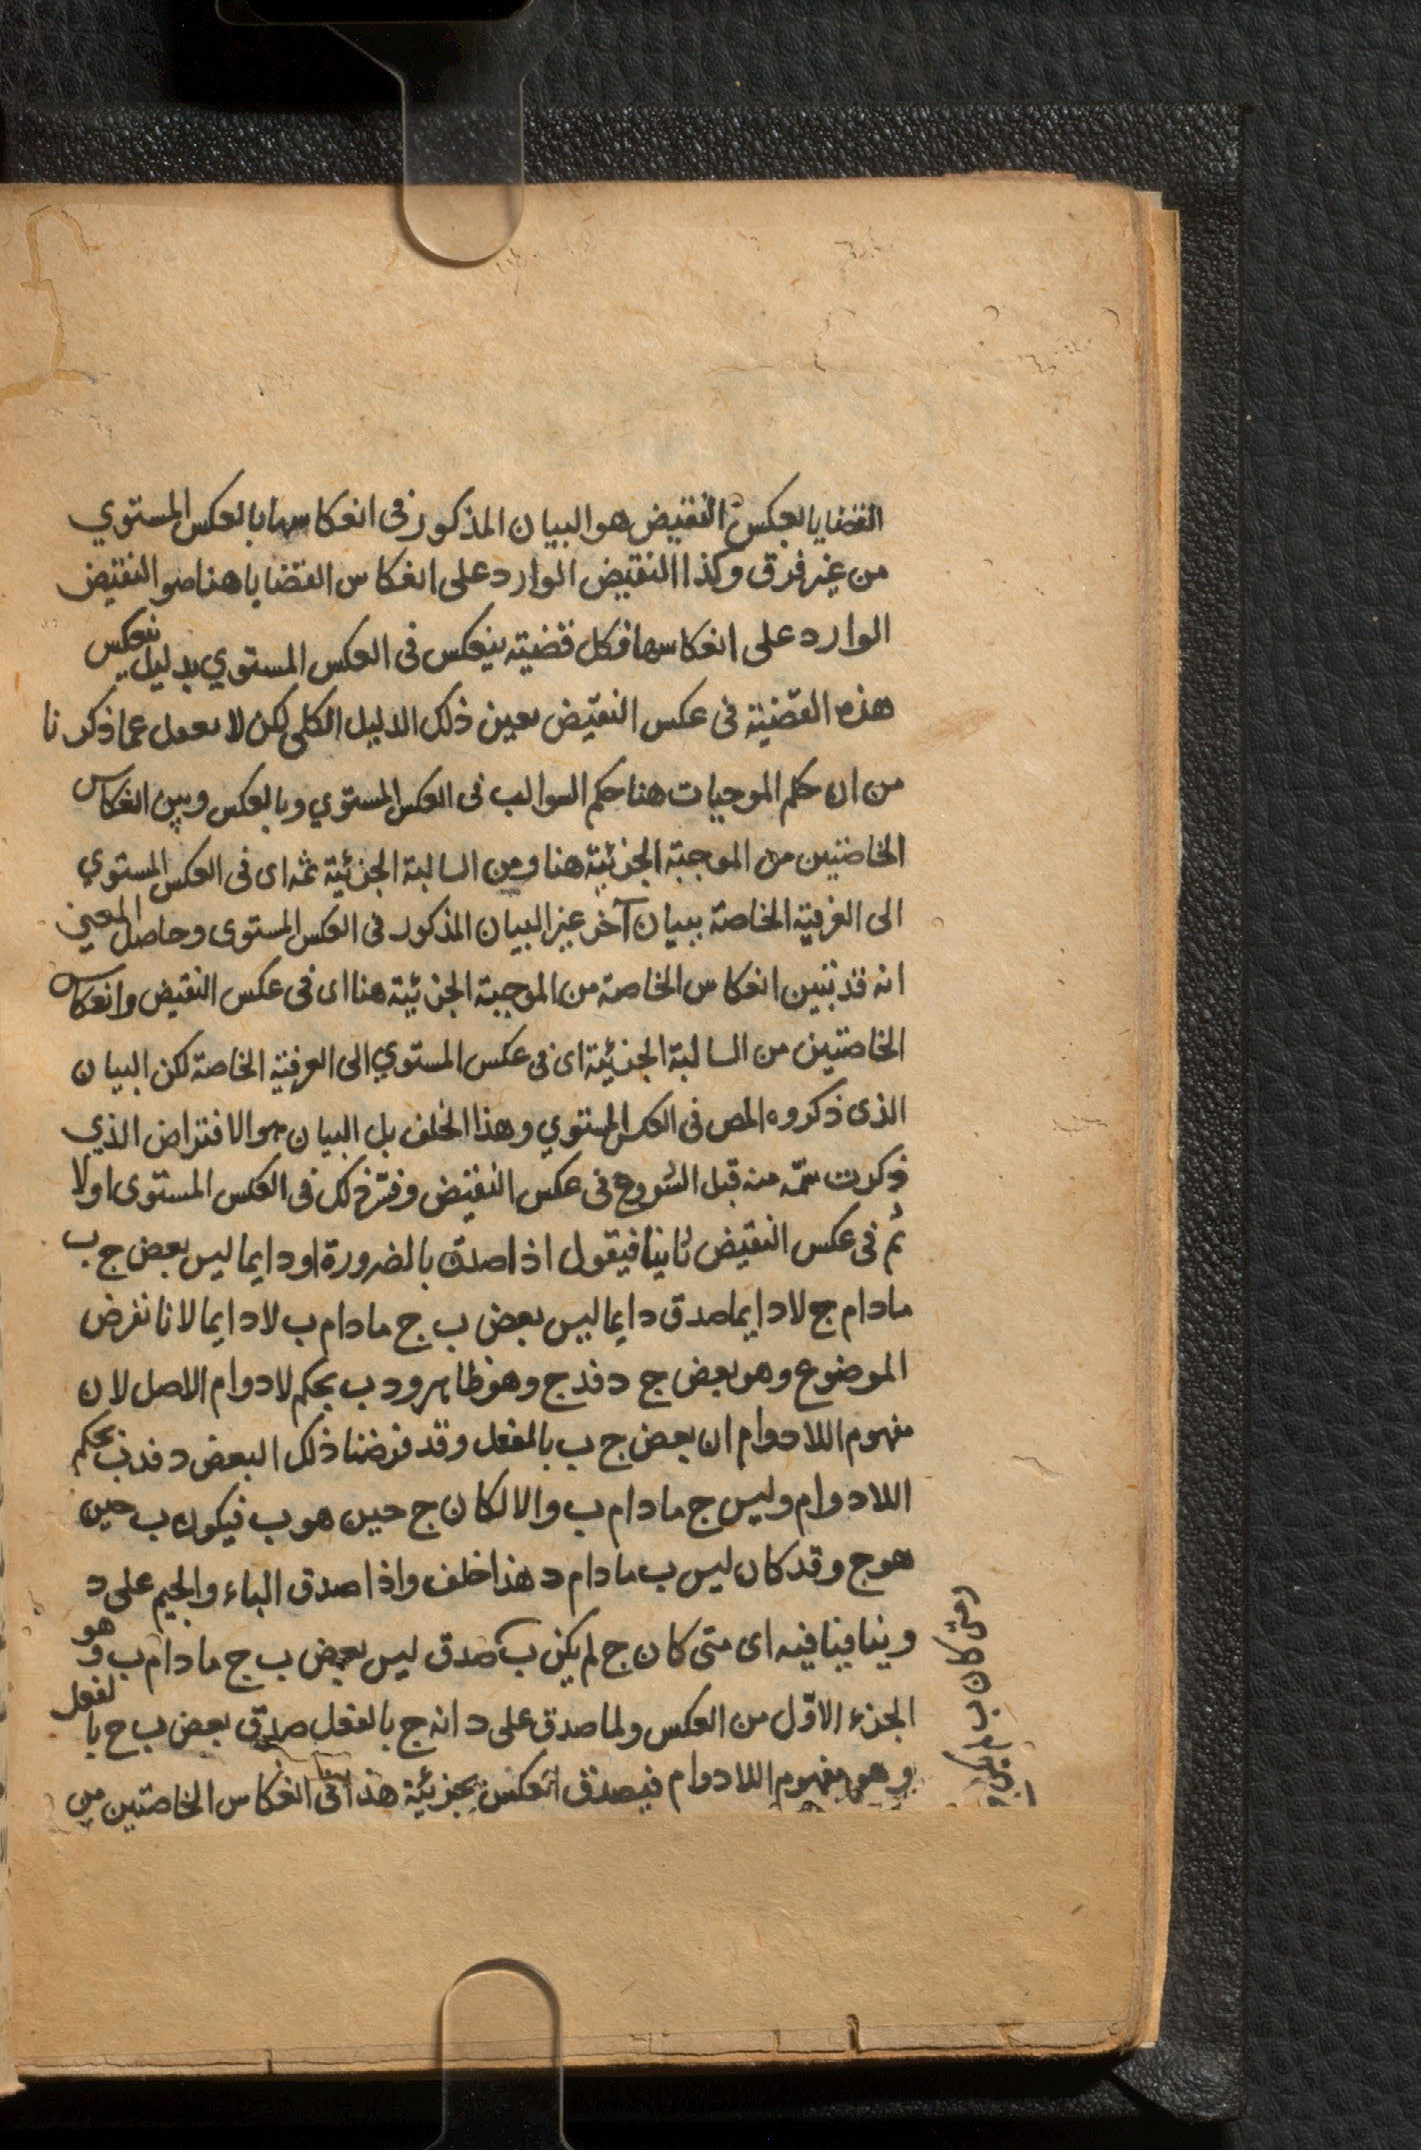 القضايا بعكس النقيض هو البيان المذكور فى انعكاسها بالعكس المستوي
من غير فرق وكذا النقيض الوارد على انعكاس القضايا هنا هو النقيض
الوارد على انعكاسها فكل قضية ينعكس فى العكس المستوي بدليل ينعكس
هذه القضية فى عكس النقيض بعين ذلك الدليل الكلى لكن لا بعمل عما ذكرنا
من ان حكم الموجبات هنا حكم السوالب فى العكس المستوي وبالعكس وبين انعكاس
الخاصتين من الموجبة الجزئية هنا ومن السالبة الجزئية ثمه اى فى العكس المستوي
الى العرفية الخاصة ببيان آخر غير البيان المذكور فى العكس المستوى وحاصل المعنى
انه قد تبين انعكاس الخاصة من الموجبة الجزئية هنا اى فى عكس النقيض وانعكاس
الخاصتين من السالبة الجزئية اى فى عكس المستوي الى العرفية الخاصة لكن البيان
الذى ذكروه المص فى العكس المستوي وهذا الخلف بل البيان هو الافتراض الذي
ذكرت ثمّه منه قبل الشروع فى عكس النقيض وقرّر ذلك فى العكس المستوى اولا
ثم فى عكس النقيض ثانيا فيقول اذا صدق بالضرورة او دايما ليس بعض ج ب
مادام ج لا دايما صدق دايما ليس بعض ب ج مادام ب لا دايما لانا نفرض
الموضوع وهو بعض ج د فد ج وهو ظاهر ود ب بحكم لادوام الاصل لان
مفهوم اللادوام ان بعض ج ب بالفعل وقد فرضنا ذلك البعض د فدب بحكم
اللادوام وليس ج مادام ب والا لكان ج حين هو ب فيكون ب حين
هو ج وقد كان ليس ب مادام د هذا خلف واذا صدق الباء والجيم على د
وينافينا فيه اى متى كان ج لم يكن ب صدق ليس بعض ب ج مادام ب وهو
الجزء الاوّل من العكس ولما صدق على د انه ج بالفعل صدق بعض ب ج بالفعل
وهو مفهوم اللادوام فيصدق العكس بجزئية هذا فى انعكاس الخاصتين من
ومتى كان ب لم يكن ج